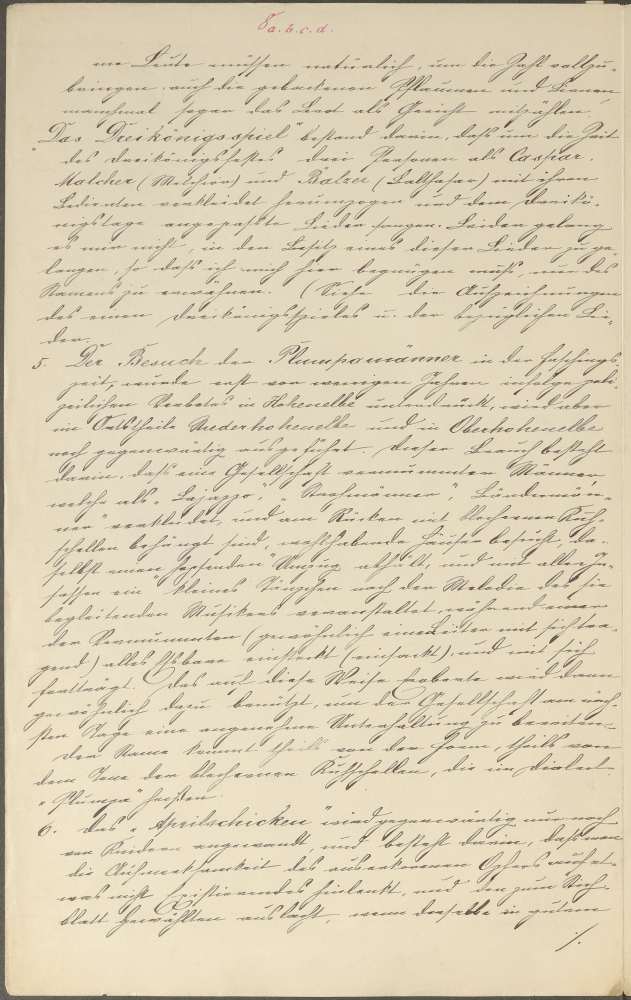 8a.b.c.d.
me Leute müssen natürlich, um die Zahl vollzu-
bringen auch die gebackenen Pflaumen und Birnen
manchmal sogar das Brot als Gericht mitzählen.
"Das Dreikönigsspiel" bestand darin, dass um die Zeit
des Dreikönigsfestes drei Personen als Caspar,
Malcher (Melchior) und Balzer (Balthasar) mit ihren
Bedienten verkleidet herumzogen und dem Dreikö-
nigstage angepasste Lieder sangen. Leider gelang
es mir nicht, in den Besitz eines dieser Lieder zu ge-
langen, so dass ich mich hier begnügen muss, nur des
Namens zu erwähnen. (Siehe die Aufzeichnungen
des einen Dreikönigsspieles u. der bezüglichen Lie-
der.
5. Der Besuch der Plumpamänner in der Faschings-
zeit, wurde erst vor wenigen Jahren infolge poli-
zeilichen Verbotes in Hohenelbe unterdrückt, wird aber
im Ortstheile Niederhohenelbe und in Oberhohenelbe
noch gegenwärtig ausgeführt. Dieser Brauch besteht
darin, dass eine Gesellschaft vermummter Männer
welche als "Bajazzo", "Strohmänner", Bändermän-
ner" verkleidet, und am Rücken mit blechernen Kuh-
schellen behängt sind, wohlhabende Häuser besucht, da-
selbst einen "hopsenden" Umzug abhält, und mit allen In-
sassen ein kleines Tänzchen nach der Melodie des sie
begleitenden Musikers veranstaltet, während einer
der Vermummten (gewöhnlich eine Leiter mit sich tra-
gend) alles Essbare einsteckt (einsackt), und mit sich
fortträgt. Das auf diese Weise Eroberte wird dann
gewöhnlich dazu benützt, um der Gesellschaft am näch-
sten Tage eine angenehme Unterhaltung zu bereiten.
Der Name kommt theils von der Form, theils von
dem Tone der blechernen Kuhschellen, die im Dialect
"Plumpa" heißen.
6. Das "Aprilschicken" wird gegenwärtig nur noch
von Kindern angewandt, und besteht darin, dass man
die Aufmerksamkeit des auserkorenen Opfers auf et-
was nicht Existierendes hinlenkt, und den zum Stich-
blatt Gewählten auslacht, wenn derselbe in gutem
./.